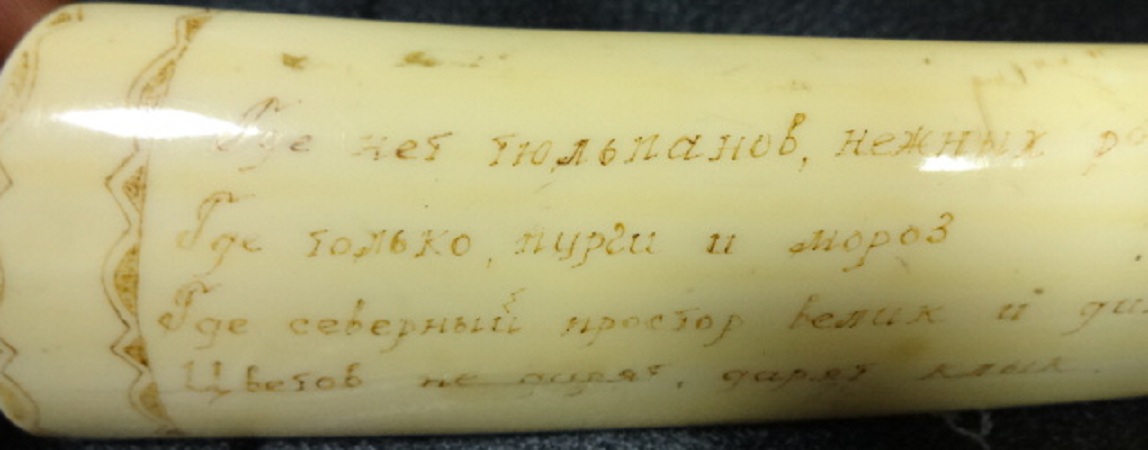 Где нет тюльпанов, нежных
Где только, пурги и мороз
Где северный простор велик и
Цветов не дарят, дарят клык.